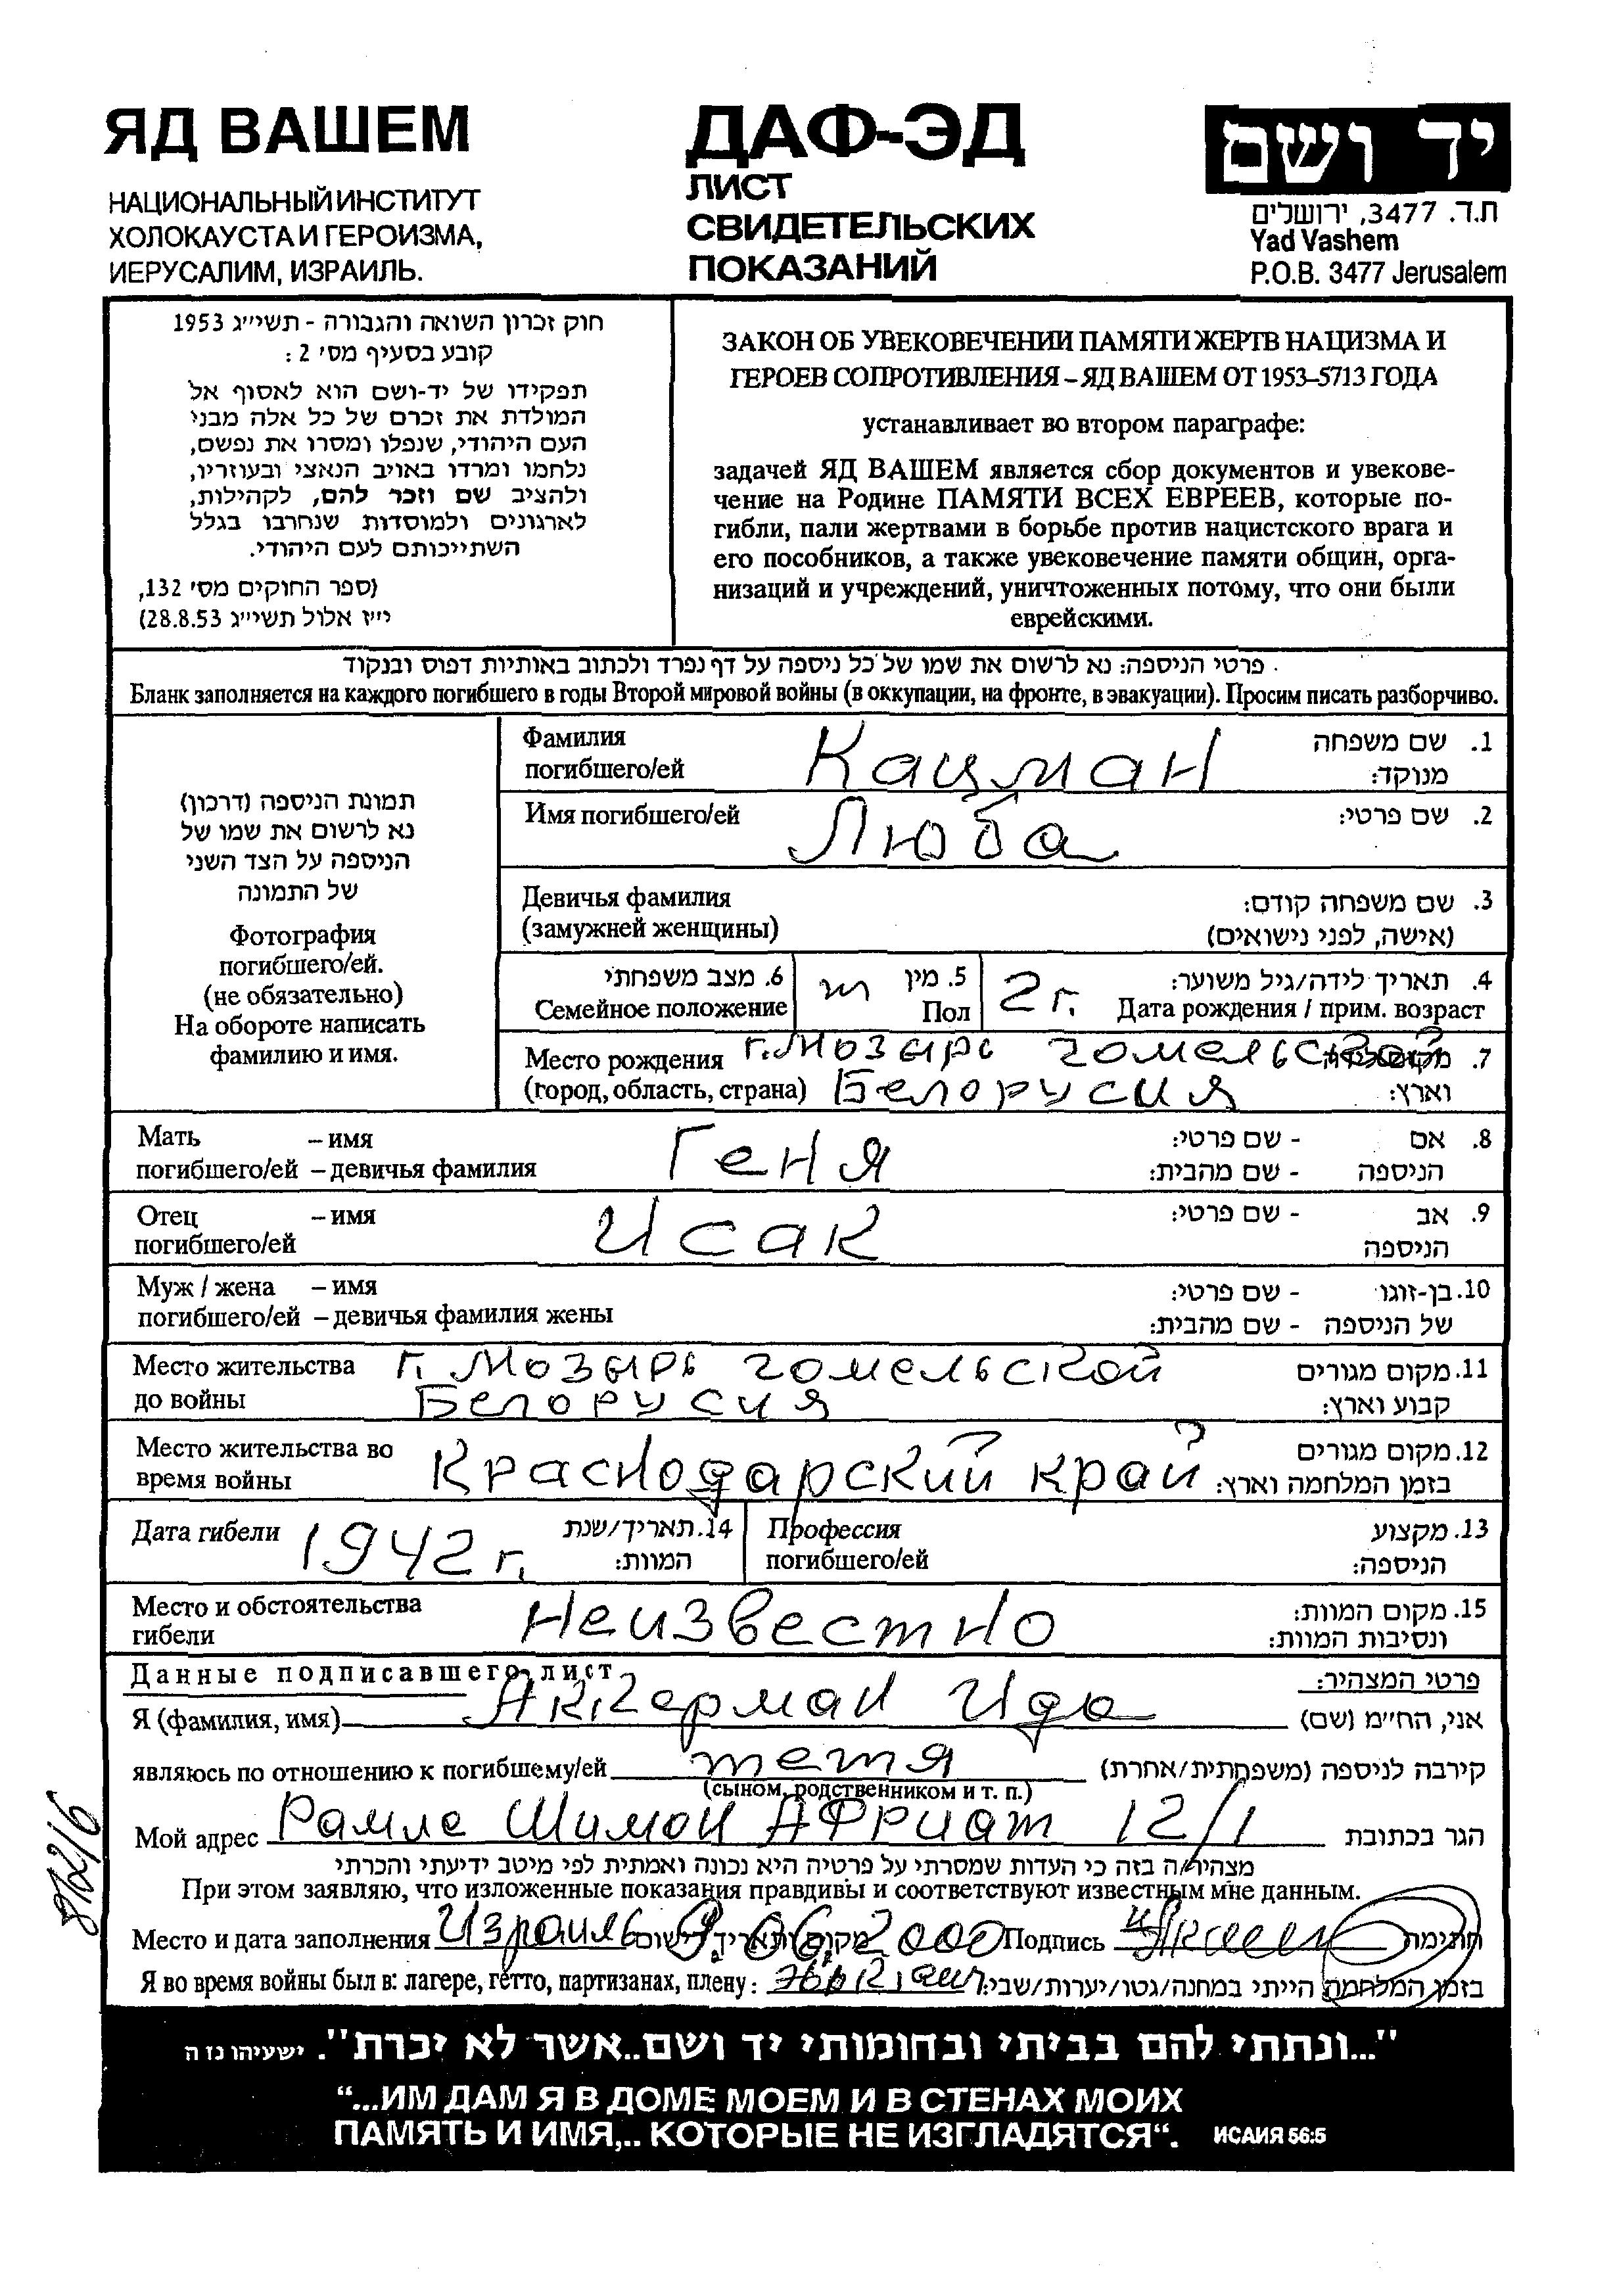 ЯД ВАШЕМ
НАЦИОНАЛЬНЫЙ ИНСТИТУТ
ХОЛОКАУСТА И ГЕРОИЗМА,
ИЕРУСАЛИМ, ИЗРАИЛЬ.
ДАФ-ЭД
ЛИСТ
СВИДЕТЕЛЬСКИХ
ПОКАЗАНИЙ
יד ושם
ת.ד. 3477, ירושלים
Yad Vashem
P.O.B. 3477 Jerusalem
חוק זכרון השואה והגבורה - תשי״ג 1953
קובע בסעיף מס׳ 2 :
תפקידו של יד-ושם הוא לאסוף אל
המולדת את זכרם של כל אלה מבני
העם היהודי, שנפלו ומסרו את נפשם,
נלחמו ומרדו באויב הנאצי ובעוזריו,
ולהציב שם וזכר להם, לקהילות,
לארגונים ולמוסדות שנחרבו בגלל
השתייכותם לעם היהודי.
(ספר החוקים מס׳ 132,
י״ז אלול תשי״ג 28.8.53)
ЗАКОН ОБ УВЕКОВЕЧЕНИИ ПАМЯТИ ЖЕРТВ НАЦИЗМА И
ГЕРОЕВ СОПРОТИВЛЕНИЯ – ЯД ВАШЕМ ОТ 1953–5713 ГОДА
устанавливает во втором параграфе:
задачей ЯД ВАШЕМ является сбор документов и увекове-
чение на Родине ПАМЯТИ ВСЕХ ЕВРЕЕВ, которые по-
гибли, пали жертвами в борьбе против нацистского врага и
его пособников, а также увековечение памяти общин, орга-
низаций и учреждений, уничтоженных потому, что они были
еврейскими.
פרטי הניספה: נא לרשום את שמו של כל ניספה על דף נפרד ולכתוב באותיות דפוס ובנקוד
Бланк заполняется на каждого погибшего в годы Второй мировой войны (в оккупации, на фронте, в эвакуации). Просим писать разборчиво.
תמונת הניספה (דרכון)
נא לרשום את שמו של
הניספה על הצד השני
של התמונה
Фотография
погибшего/ей.
(не обязательно)
На обороте написать
фамилию и имя.
Фамилия
погибшего/ей Кацман
1. שם משפחה
מנוקד:
Имя погибшего/ей Люба 2. שם פרטי:
Девичья фамилия
(замужней женщины)
3. שם משפחה קודם:
(אישה, לפני נישואים)
6. מצב משפחתי
Семейное положение
5. מין
Пол
2 г.
4. תאריך לידה/גיל משוער:
Дата рождения / прим. возраст
Место рождения г. Мозырь гомельской 7.
(город, область, страна) Белорусия וארץ:
Мать – имя
погибшего/ей – девичья фамилия Геня
8. אם - שם פרטי:
הניספה - שם מהבית:
Отец – имя
погибшего/ей Исак
9. אב - שם פרטי:
הניספה
Муж / жена – имя
погибшего/ей – девичья фамилия жены
10. בן-זוגו - שם פרטי:
של הניספה - שם מהבית:
Место жительства г. Мозырь гомельской
до войны Белорусия
11. מקום מגורים
קבוע וארץ:
Место жительства во
время войны Краснодарский край
12. מקום מגורים
בזמן המלחמה וארץ:
Дата гибели 1942 г.
14. תאריך/שנת
המוות:
Профессия
погибшего/ей
13. מקצוע
הניספה:
Место и обстоятельства
гибели неизвестно
15. מקום המוות:
ונסיבות המוות:
Данные подписавшего лист פרטי המצהיר:
Я (фамилия, имя) Аккерман Ида אני, הח״מ (שם)
являюсь по отношению к погибшему/ей тетя קירבה לניספה (משפחתית/אחרת)
(сыном, родственником и т. п.)
Мой адрес Рамле Шимон Африат 12/1 הגר בכתובת
מצהיר/ה בזה כי העדות שמסרתי על פרטיה היא נכונה ואמתית לפי מיטב ידיעתי והכרתי
При этом заявляю, что изложенные показания правдивы и соответствуют известным мне данным.
Место и дата заполнения Израиль 9.06.2000 מקום ותאריך רישום Подпись חתימה
Я во время войны был в: лагере, гетто, партизанах, плену: בזמן המלחמה הייתי במחנה/גטו/יערות/שבי:
8/12/6
"...ונתתי להם בביתי ובחומותי יד ושם..אשר לא יכרת". ישעיהו נז ה
“...ИМ ДАМ Я В ДОМЕ МОЕМ И В СТЕНАХ МОИХ
ПАМЯТЬ И ИМЯ,.. КОТОРЫЕ НЕ ИЗГЛАДЯТСЯ“. ИСАИЯ 56:5